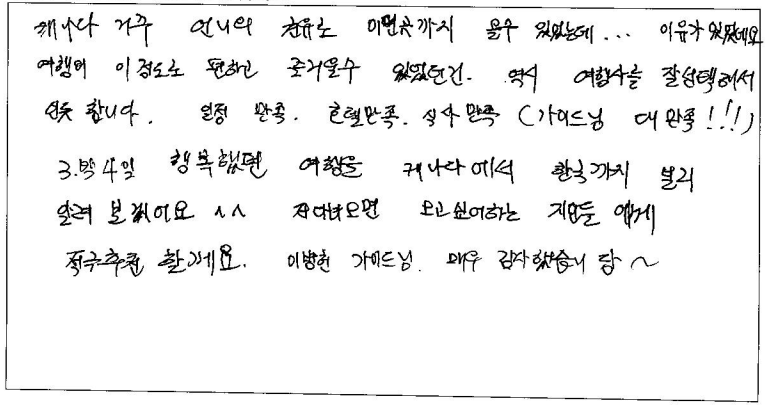 캐나다 거주 언니의 권유로 이먼곳까지 올수 있었는데... 이유가 있었네요
여행이 이정도로 편하고 즐거울수 있었던건. 역시 여행사를 잘선택해서
인듯 합니다. 일정 만족. 호텔만족. 식사 만족 (가이드님 대 만족!!!)
3.박4일 행복했던 여행을 캐나다에서 한국까지 널리
알려 보겠어요 ^^ 오고싶어하는 지인들 에게
적극추천 할게요. 가이드님. 매우 감사했습니 당 ~